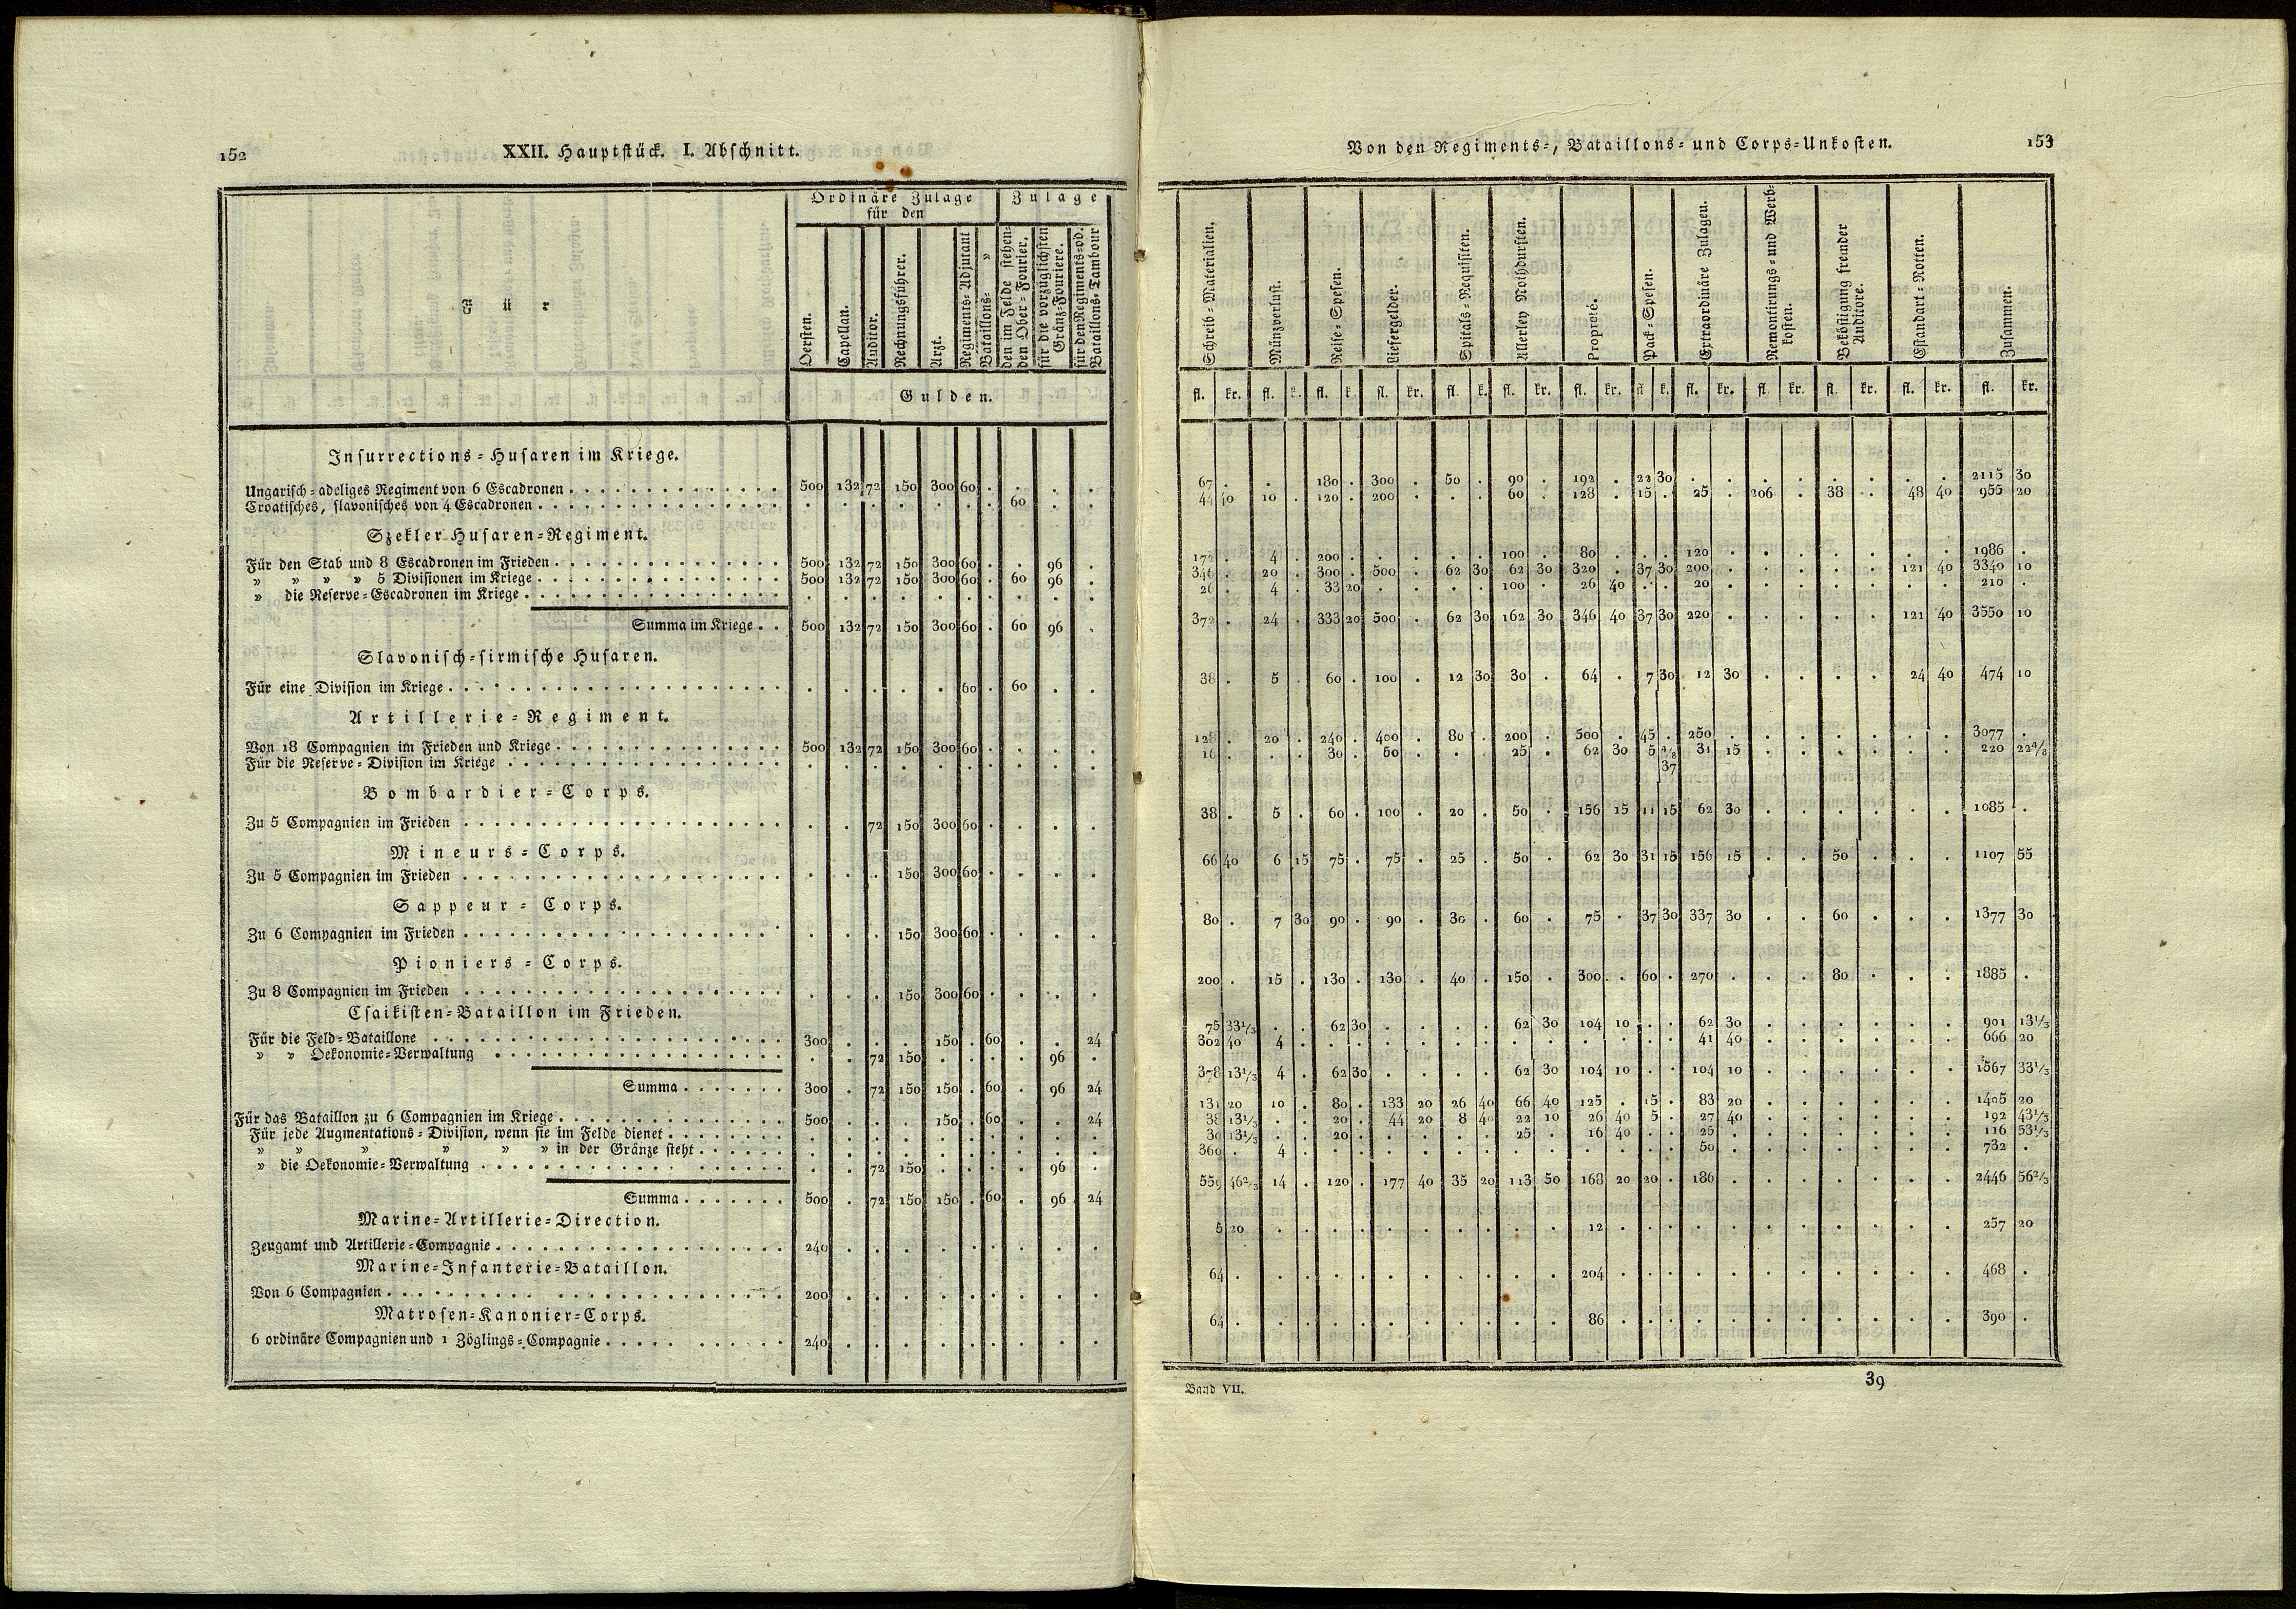 152
XXII. Hauptstück. I. Abschnitt.
Für
Ordinäre Zulage
für den
Zulage
Oersten.
Capellan.
Auditor.
Rechnungsführer.
Arzt.
Regiments-Adjutant
Bataillons- »
den im Felde stehen-
den Ober-Fourier.
für die vorzüglichsten
Gränz-Fouriere.
für den Regiments- od.
Bataillons-Tambour
Gulden.
Insurrections-Husaren im Kriege.
Ungarisch-adeliges Regiment von 6 Escadronen . . . 500 132 72 150 300 60 . . . .
Croatisches, slavonisches von 4 Escadronen . . . . . . . . . . 60 . .
Szekler Husaren-Regiment.
Für den Stab und 8 Escadronen im Frieden . . . 500 132 72 150 300 60 . . 96 .
» » » » 5 Divisionen im Kriege . . . 500 132 72 150 300 60 . 60 96 .
» die Reserve-Escadronen im Kriege . . . . . . . . . . . . .
Summa im Kriege . . 500 132 72 150 300 60 . 60 96 .
Slavonisch-sirmische Husaren.
Für eine Division im Kriege . . . . . . . . 60 . 60 . .
Artillerie-Regiment.
Von 18 Compagnien im Frieden und Kriege . . . 500 132 72 150 300 60 . . . .
Für die Reserve-Division im Kriege . . . . . . . . . . . . .
Bombardier-Corps.
Zu 5 Compagnien im Frieden . . . . . 72 150 300 60 . . . .
Mineurs-Corps.
Zu 5 Compagnien im Frieden . . . . . . 150 300 60 . . . .
Sappeur-Corps.
Zu 6 Compagnien im Frieden . . . . . . 150 300 60 . . . .
Pioniers-Corps.
Zu 8 Compagnien im Frieden . . . . . . 150 300 60 . . . .
Csaikisten-Bataillon im Frieden.
Für die Feld-Bataillone . . . 300 . . . 150 . 60 . . 24
» » Oekonomie-Verwaltung . . . . . 72 150 . . . . 96 .
Summa . . . 300 . 72 150 150 . 60 . 96 24
Für das Bataillon zu 6 Compagnien im Kriege . . . 500 . . . 150 . 60 . . 24
Für jede Augmentations-Division, wenn sie im Felde dienet . . . . . . . . . . . . .
» » » » » » in der Gränze steht . . . . . . . . . . . . .
» die Oekonomie-Verwaltung . . . . . 72 150 . . . . 96 .
Summa . . . 500 . 72 150 150 . 60 . 96 24
Marine-Artillerie-Direction.
Zeugamt und Artillerie-Compagnie . . . 240 . . . . . . . . .
Marine-Infanterie-Bataillon.
Von 6 Compagnien . . . 200 . . . . . . . . .
Matrosen-Kanonier-Corps.
6 ordinäre Compagnien und 1 Zöglings-Compagnie . . . 240 . . . . . . . . .
Von den Regiments-, Bataillons- und Corps-Unkosten.
153
Schreib-Materialien.
Münzverlust.
Reise-Spesen.
Liefergelder.
Spitals-Requisiten.
Allerley Nothdurften.
Proprete.
Pack-Spesen.
Extraordinäre Zulagen.
Remontirungs- und Werb-
kosten.
Beköstigung fremder
Auditore.
Estandart-Rotten.
Zusammen.
fl. kr. fl. k. fl. k. fl. kr. fl. k. fl. kr. fl. kr. fl. k. fl. kr. fl. kr. fl. kr. fl. kr. fl. kr.
67 . . . 180 . 300 . 50 . 90 . 192 . 22 30 . . . . . . . . 2115 30
44 40 10 . 120 . 200 . . . 60 . 128 . 15 . 25 . 206 . 38 . 48 40 955 20
172 . 4 . 200 . . . . . 100 . 80 . . . 120 . . . . . . . 1986 .
346 . 20 . 300 . 500 . 62 30 62 30 320 . 37 30 200 . . . . . 121 40 3340 10
26 . 4 . 33 20 . . . . 100 . 26 40 . . 20 . . . . . . . 210 .
372 . 24 . 333 20 500 . 62 30 162 30 346 40 37 30 220 . . . . . 121 40 3550 10
38 . 5 . 60 . 100 . 12 30 30 . 64 . 7 30 12 30 . . . . 24 40 474 10
128 . 20 . 240 . 400 . 80 . 200 . 500 . 45 . 250 . . . . . . . 3077 .
16 . . . 30 . 50 . . . 25 . 62 30 5 4/8 31 15 . . . . . . 220 22 4/8
37
38 . 5 . 60 . 100 . 20 . 50 . 156 15 11 15 62 30 . . . . . . 1085 .
66 40 6 15 75 . 75 . 25 . 50 . 62 30 31 15 156 15 . . 50 . . . 1107 55
80 . 7 30 90 . 90 . 30 . 60 . 75 . 37 30 337 30 . . 60 . . . 1377 30
200 . 15 . 130 . 130 . 40 . 150 . 300 . 60 . 270 . . . 80 . . . 1885 .
75 33 1/3 . . 62 30 . . . . 62 30 104 10 . . 62 30 . . . . . . 901 13 1/3
302 40 4 . . . . . . . . . . . . . 41 40 . . . . . . 666 20
378 13 1/3 4 . 62 30 . . . . 62 30 104 10 . . 104 10 . . . . . . 1567 33 1/3
131 20 10 . 80 . 133 20 26 40 66 40 125 . 15 . 83 20 . . . . . . 1405 20
38 13 1/3 . . 20 . 44 20 8 40 22 10 26 40 5 . 27 40 . . . . . . 192 43 1/3
30 13 1/3 . . 20 . . . . . 25 . 16 40 . . 25 . . . . . . . 116 53 1/3
360 . 4 . . . . . . . . . . . . . 50 . . . . . . . 732 .
559 46 2/3 14 . 120 . 177 40 35 20 113 50 168 20 20 . 186 . . . . . . . 2446 56 2/3
5 20 . . . . . . . . . . 12 . . . . . . . . . . . 257 20
64 . . . . . . . . . . . 204 . . . . . . . . . . . 468 .
64 . . . . . . . . . . . 86 . . . . . . . . . . . 390 .
Band VII.
39